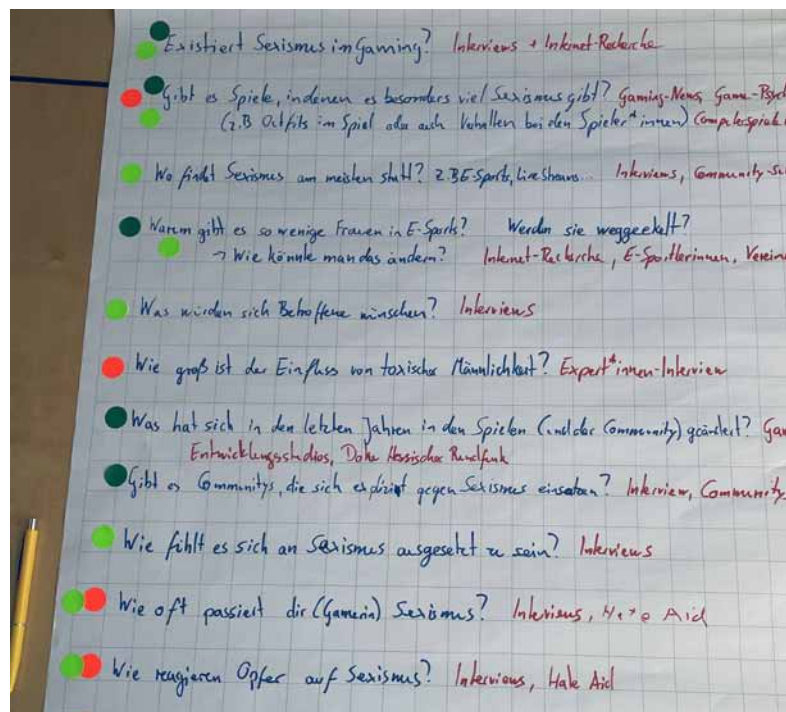 Existiert Sexismus im Gaming? Interviews + Internet-Recherche
Gibt es Spiele, in denen es besonders viel Sexismus gibt? Gaming-News, Game-Psych
(z.B Outfits im Spiel oder auch Verhalten bei den Spieler*innen) Computerspiele
Wo findet Sexismus am meisten statt? z.B E-Sports, Livestreams... Interviews, Community-Se
Warum gibt es so wenige Frauen in E-Sports? Werden sie weggeekelt?
→ Wie könnte man das ändern? Internet-Recherche, E-Sportlerinnen, Vereine
Was würden sich Betroffene wünschen? Interviews
Wie groß ist der Einfluss von toxischer Männlichkeit? Expert*innen-Interview
Was hat sich in den letzten Jahren in den Spielen (und der Community) geändert? Gam
Entwicklungsstudios, Doku Hessischer Rundfunk
Gibt es Communitys, die sich explizit gegen Sexismus einsetzen? Interview, Community
Wie fühlt es sich an Sexismus ausgesetzt zu sein? Interviews
Wie oft passiert dir (Gamerin) Sexismus? Interviews, Hate Aid
Wie reagieren Opfer auf Sexismus? Interviews, Hate Aid